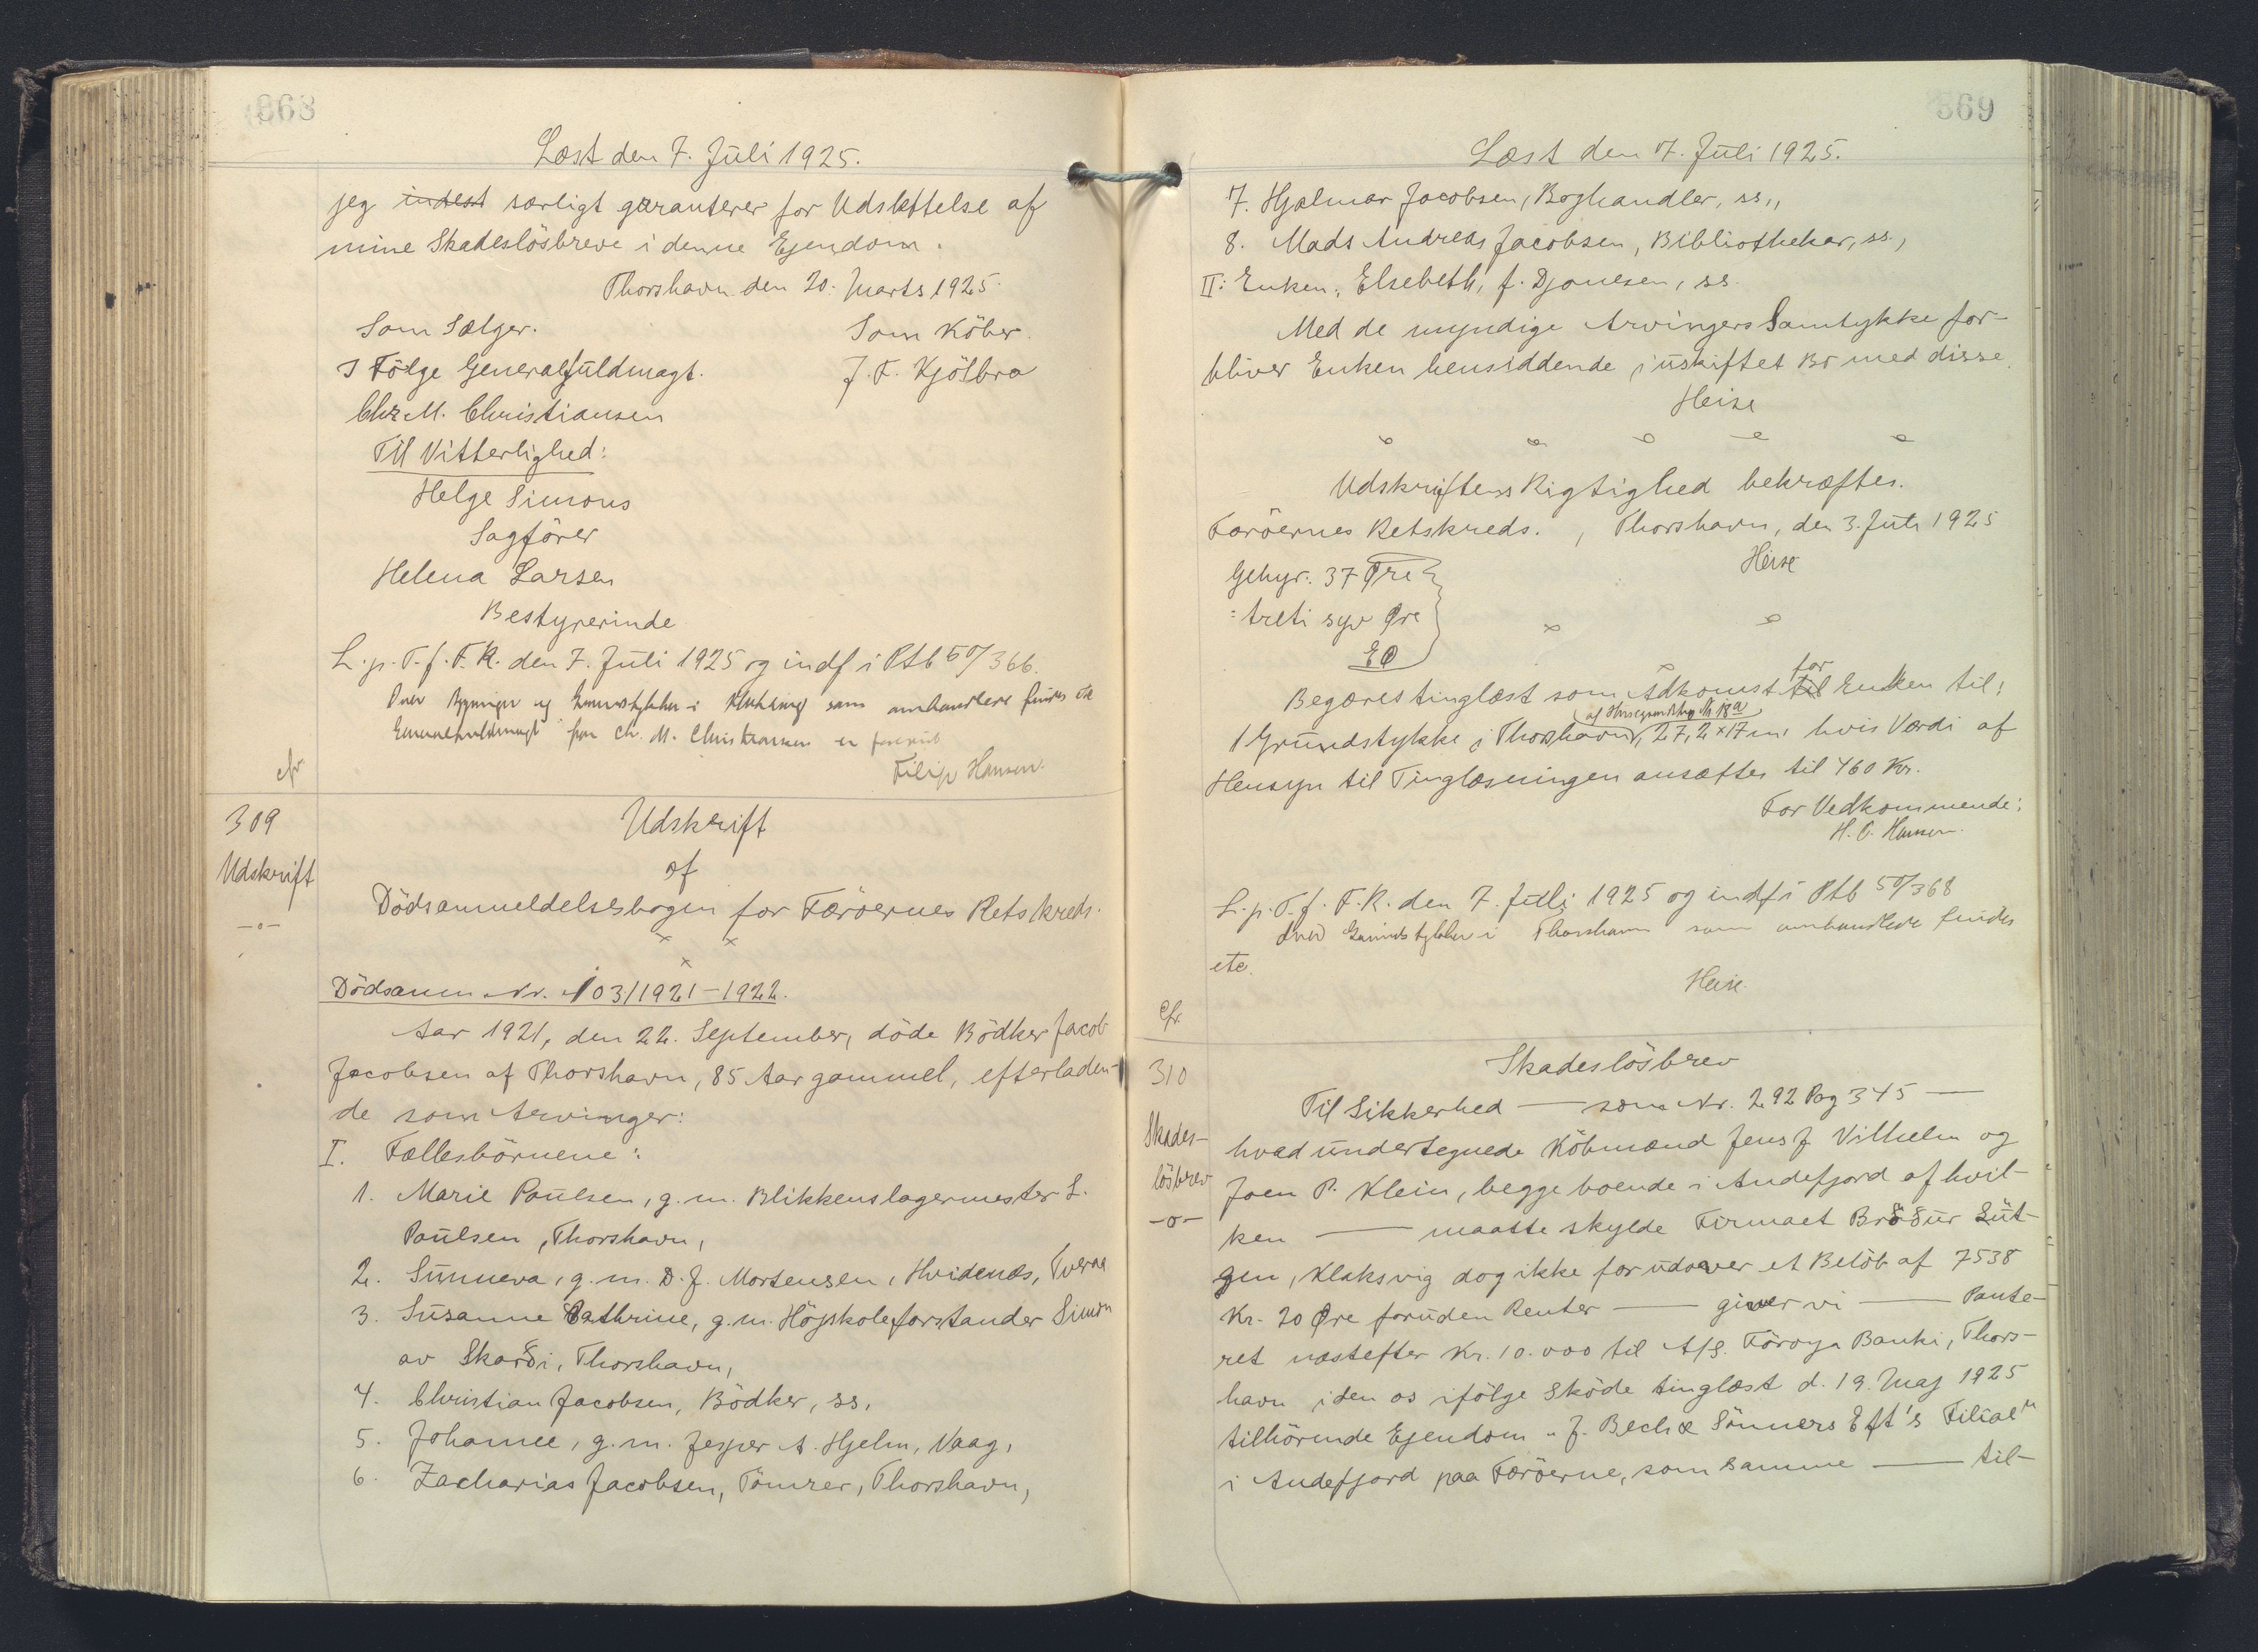 368
Læst den 7. Juli 1925.
jeg indest særligt garanterer for Udslettelse af
mine Skadeslösbreve i denne Ejendom.
Thorshavn den 20. Marts 1925.
Som Sælger.
Som Köber.
I Fölge Generalfuldmagt.
J. F. Kjölbro
Chr. M. Christiansen
Til Vitterlighed:
Helge Simons
Sagförer
Helena Larsen
Bestyrerinde
L. p. T. f. F. R. den 7. Juli 1925 og indf. i Ptb 50/366.
Over Bygninger og Grundstykker i Klaksvig som omhandlere findes etc
Generalfuldmagt fra Ch. M. Christiansen er forevist
Filip Hansen.
cfr
309
Udskrift
-o-
Udskrift
af
Dödsanmeldelsesbogen for Færöernes Retskreds.
x x
x
Dödsanm Nr. 103/1921-1922.
Aar 1921, den 22. September, döde Bödker Jacob
Jacobsen af Thorshavn, 85 Aar gammel, efterladen-
de som Arvinger:
I. Fællesbörnene:
1. Marie Poulsen, g. m. Blikkenslagermester L.
Poulsen, Thorshavn,
2. Sunneva, g. m. D. J. Mortensen, Hvidenæs, Tveraa
3. Susanne Cathrine, g. m. Höjskoleforstander Simun
av Skarði, Thorshavn,
4. Christian Jacobsen, Bödker, ss,
5. Johanne, g. m. Jesper A. Hjelm, Vaag,
6. Zacharias Jacobsen, Tömrer, Thorshavn,
369
Læst den 7. Juli 1925.
7. Hjalmar Jacobsen, Boghandler, ss,,
8. Mads Andreas Jacobsen, Bibliothekar, ss.,
II: Enken, Elsebeth, f. Djonesen, ss.
Med de myndige Arvingers Samtykke for-
bliver Enken hensiddende i uskiftet Bo med disse.
Heise
Udskriftens Rigtighed bekræftes.
Færöernes Retskreds., Thorshavn, den 3. Juli 1925
Heise
Gebyr. 37 Øre
= treti syv Øre
Begæres tinglæst som Adkomst til for Enken til:
af Husegrundstkp № 18a
1 Grundstykke i Thorshavn, 27,2 x 17 m. hvis Værdi af
Hensyn til Tinglæsningen ansættes til 460 Kr.
For Vedkommende:
H. C. Hansen.
L. p. T. f. F. R. den 7. Juli 1925 og indf i Ptb 50/368
Over Grundstykker i Thorshavn som omhandlere findes
etc.
Heise
Cfr.
310
Skades-
lösbrev
-o-
Skadeslösbrev
Til Sikkerhed — som Nr. 292 Pag 345 —
hvad undertegnede Köbmænd Jens J. Vilhelm og
Joen P. Klein, begge boende i Andefjord af hvil-
ken — maatte skylde Firmaet Bröður Lüt-
gen, Klaksvig dog ikke forudover et Belöb af 7538
Kr. 20 Øre foruden Renter — giver vi — Pante-
ret næstefter Kr. 10.000 til A/S. Föroya Banki, Thors-
havn i den os ifölge Sköde tinglæst d. 19. Maj 1925
tilhörende Ejendom „J. Bech & Sönners Eft's Filial"
i Andefjord paa Færöerne, som samme — til-